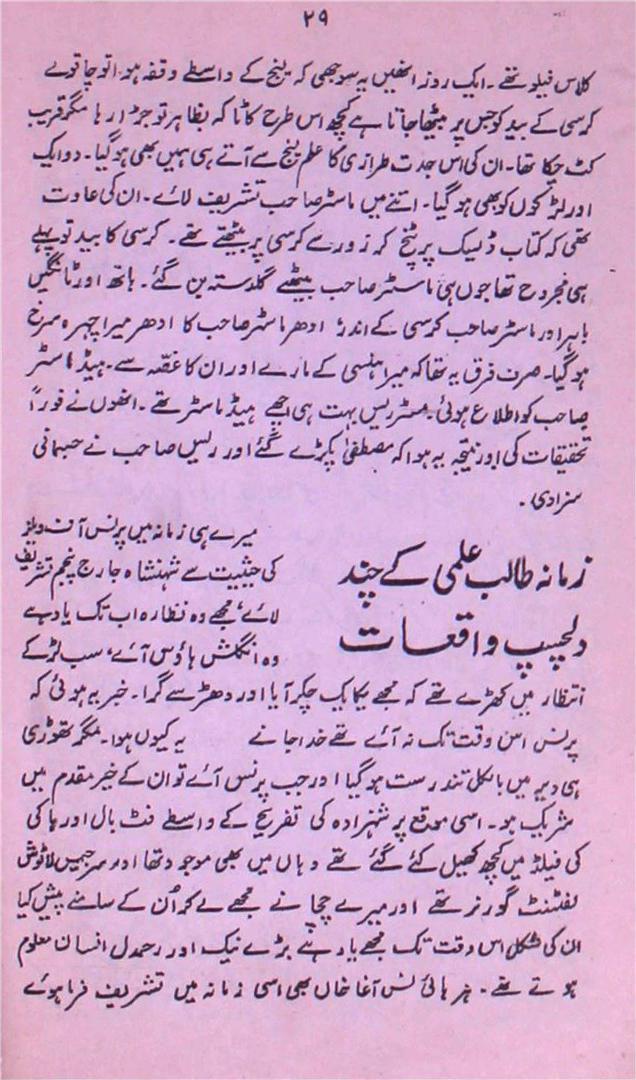 ۲۹
کلاس فیلو تھے۔ ایک روز انھیں یہ سوجھی کہ پنج کے واسطے وقفہ ہوا تو چاقو سے
کرسی کے بید کو جس پر بیٹھا جاتا ہے کچھ اس طرح کاٹا کہ بظاہر تو جڑا رہا مگر قریب
کٹ چکا تھا۔ ان کی اس جدت طرازی کا علم پنج سے آتے ہی ہمیں بھی ہو گیا۔ دو ایک
اور لڑکوں کو بھی ہو گیا۔ اتنے میں ماسٹر صاحب تشریف لائے۔ ان کی عادت
تھی کہ کتاب ڈسیک پر پٹخ کر زور سے کرسی پر بیٹھتے تھے۔ کرسی کا بید تو پہلے
ہی مجروح تھا جوں ہی ماسٹر صاحب بیٹھے گلدستہ بن گئے۔ ہاتھ اور ٹانگیں
باہر اور ماسٹر صاحب کرسی کے اندر۔ ادھر ماسٹر صاحب کا ادھر میرا چہرہ سرخ
ہو گیا۔ صرف فرق یہ تھا کہ میرا ہنسی کے مارے اور ان کا غصّہ سے۔ ہیڈ ماسٹر
صاحب کو اطلاع ہوئی۔ مسٹر ریس بہت ہی اچھے ہیڈ ماسٹر تھے۔ انھوں نے فوراً
تحقیقات کی اور نتیجہ یہ ہوا کہ مصطفیٰ پکڑے گئے اور ریس صاحب نے جسمانی
سزا دی۔
زمانہ طالب علمی کے چند
دلچسپ واقعات
میرے ہی زمانہ میں پرنس آف ویلز
کی حیثیت سے شہنشاہ جارج پنجم تشریف
لائے، مجھے وہ نظارہ اب تک یاد ہے
وہ انگلش ہاؤس آئے، سب لڑکے
انتظار میں کھڑے تھے کہ مجھے یکایک چکر آیا اور دھڑ سے گرا۔ خیر یہ ہوئی کہ
پرنس اس وقت تک نہ آئے تھے خدا جانے یہ کیوں ہوا۔ مگر تھوڑی
ہی دیر میں بالکل تندرست ہو گیا اور جب پرنس آئے تو ان کے خیر مقدم میں
شریک ہو۔ اسی موقع پر شہزادہ کی تفریح کے واسطے فٹ بال اور ہاکی
کی فیلڈ میں کچھ کھیل کئے گئے تھے وہاں میں بھی موجود تھا اور سر جیمس لاٹوش
لفٹننٹ گورنر تھے اور میرے چچا نے مجھے لے کر اُن کے سامنے پیش کیا
ان کی شکل اس وقت تک مجھے یاد ہے بڑے نیک اور رحمدل انسان معلوم
ہوتے تھے۔ ہز ہائی نس آغا خاں بھی اسی زمانہ میں تشریف فرما ہوئے